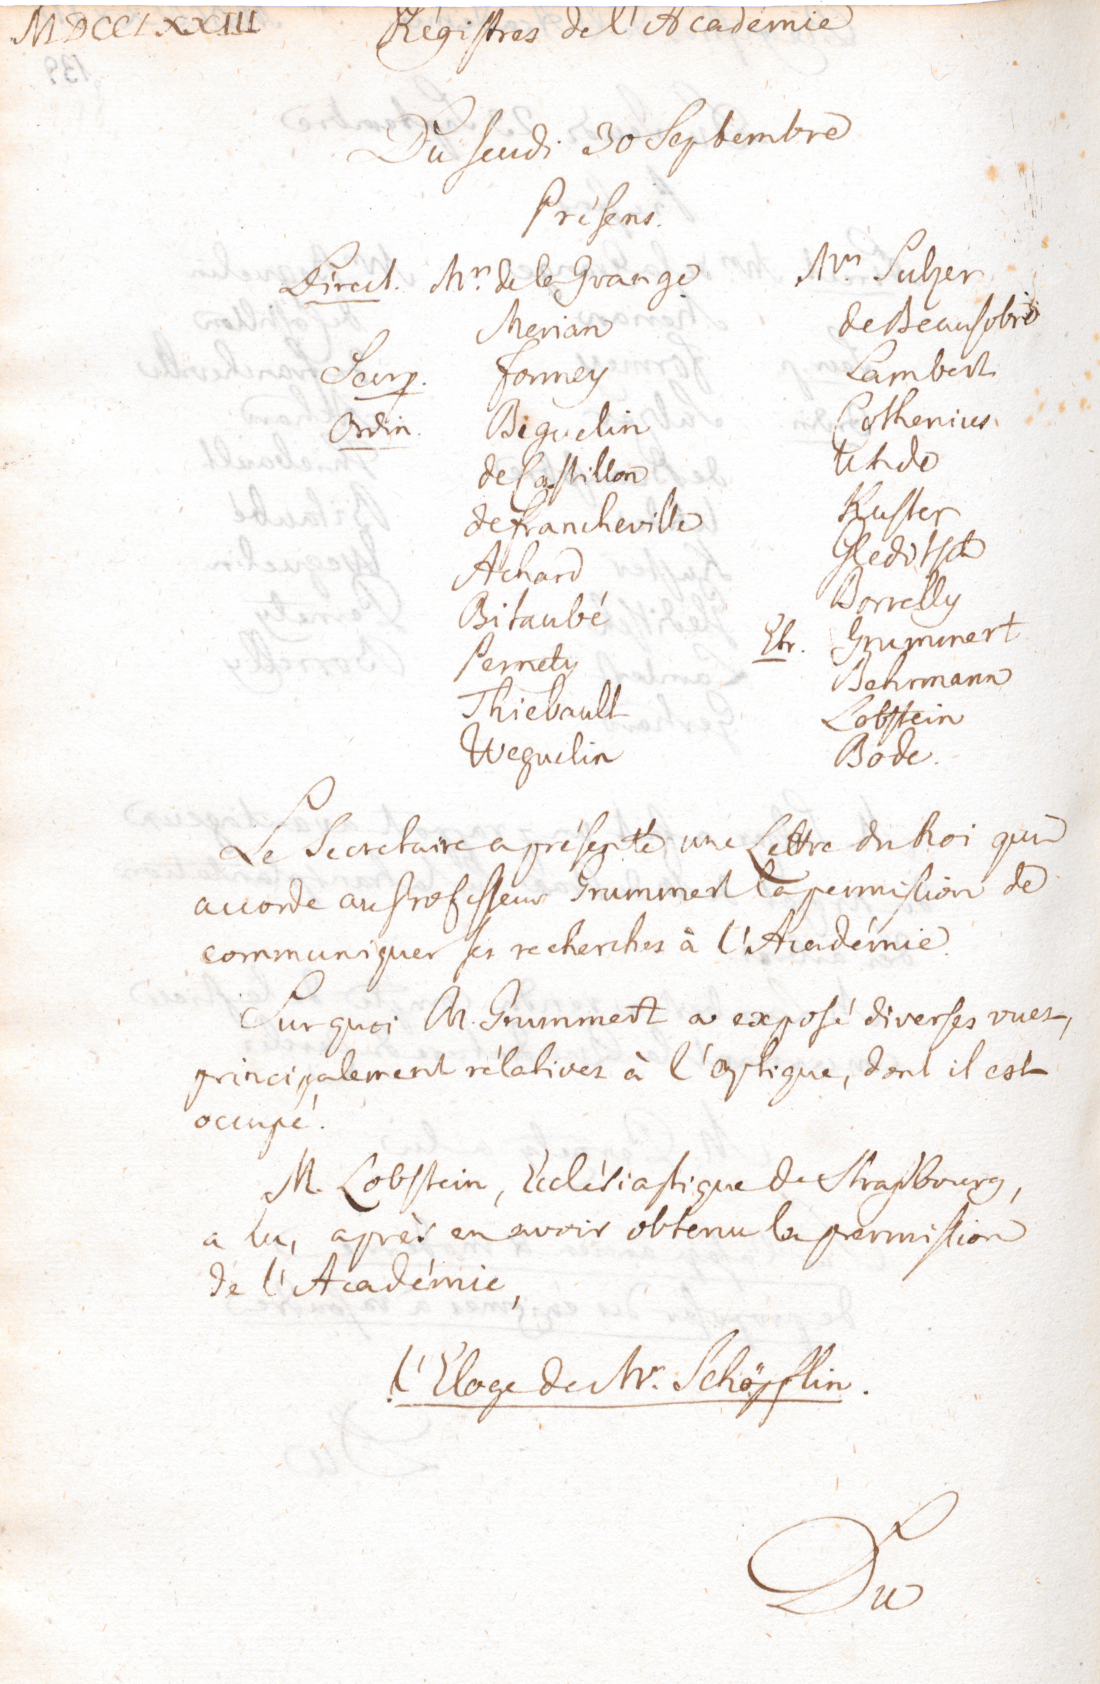 MDCCLXXIII Régistres de l'Académie
Du Jeudi 30 Septembre
Présens.
Direct. Mrs. de la Grange
Merian
Secrp. Formey
Ordin. Beguelin
de Castillon
de Francheville
Achard
Bitaubé
Pernety
Thiebault
Weguelin
Mrs. Sulzer
de Beausobre
Lambert
Cothenius
Uhde
Kuster
Gleditsch
Borrelly
Etr. Grummert
Behrmann
Lobstein
Bode.
Le Secretaire a présenté une Lettre du Roi qui
accorde au Professeur Grummert la permission de
communiquer ses recherches à l'Académie.
Sur quoi M. Grummert a exposé diverses vues,
principalement rélatives à l'optique, dont il est
occupé.
M. Lobstein, Ecclésiastique de Strasbourg,
a lu, après en avoir obtenu la permission
de l'Académie,
l'Eloge de Mr. Schöpflin.
Du